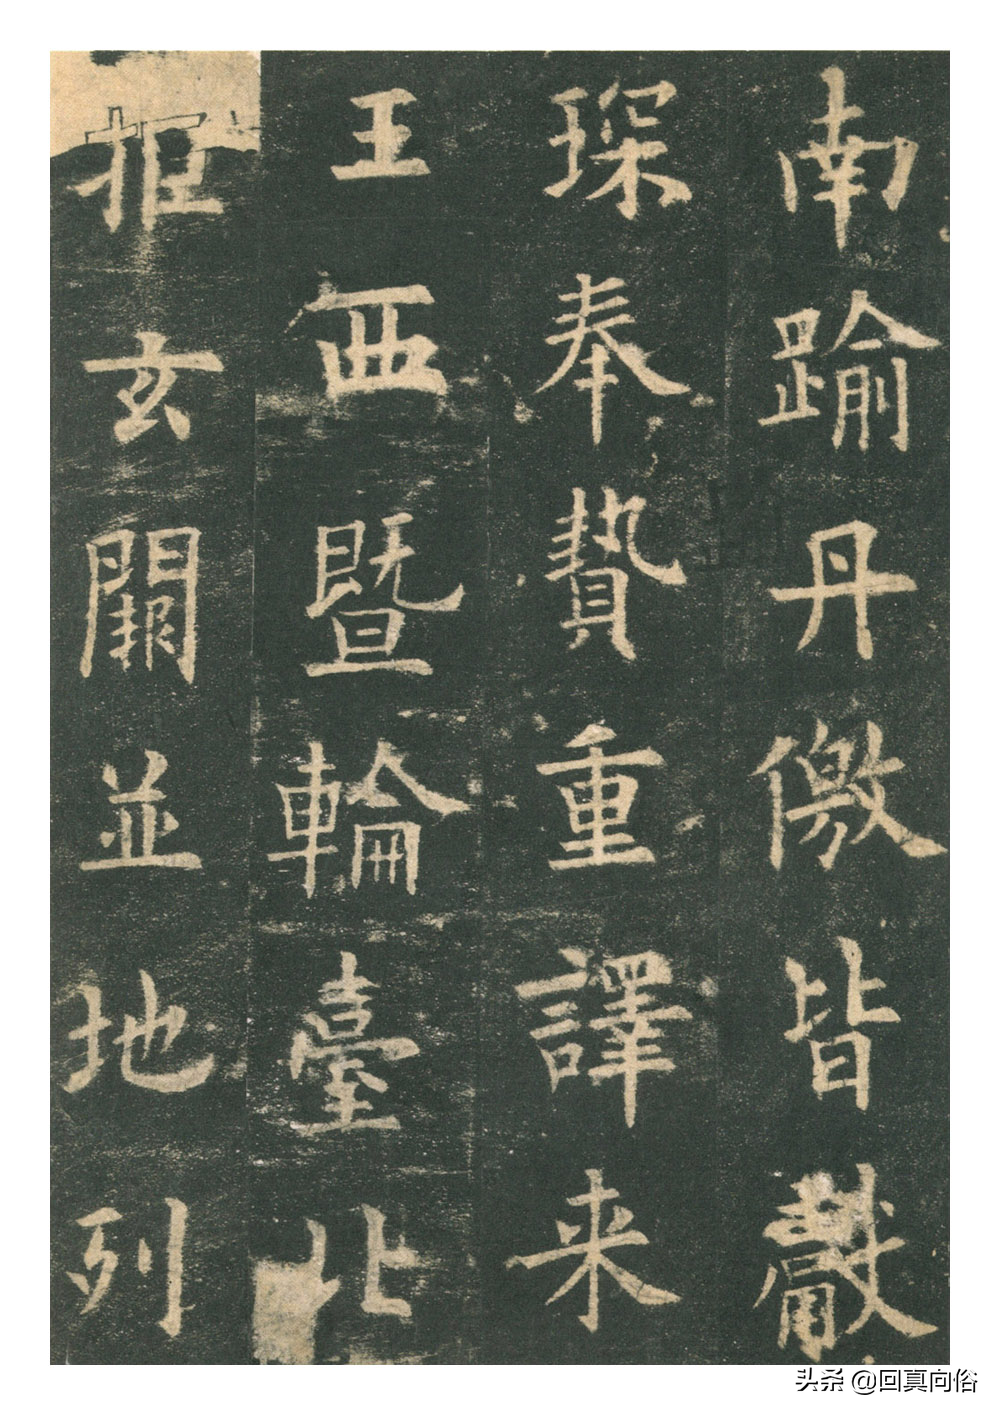 南踰丹儌皆獻
琛奉贄重譯来
王西暨輪臺北
拒玄闕並地列
头条 @回真向俗